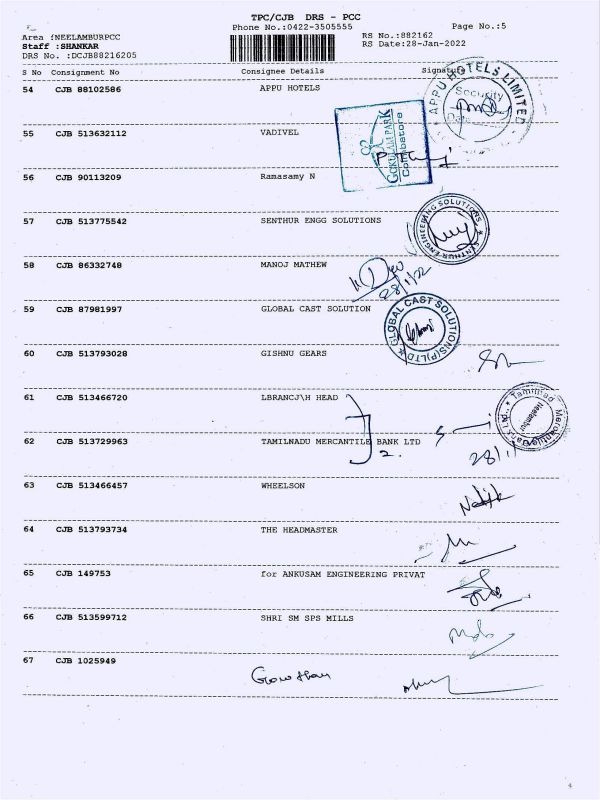 TPC/CJB DRS - PCC
Phone No.:0422-3505555 Page No.:5
Area :NEELAMBURPCC RS No.:882162
Staff :SHANKAR RS Date:28-Jan-2022
DRS No. :DCJB88216205
S No Consignment No Consignee Details Signature
54 CJB 88102586 APPU HOTELS
APPU HOTELS LIMITED
Security
Date
55 CJB 513632112 VADIVEL
GOKULAM PARK
Coimbatore
56 CJB 90113209 Ramasamy N
57 CJB 513775542 SENTHUR ENGG SOLUTIONS
SENTHUR ENGINEERING SOLUTIONS
58 CJB 86332748 MANOJ MATHEW
28/1/22
59 CJB 87981997 GLOBAL CAST SOLUTION
GLOBAL CAST SOLUTIONS(P)LTD
60 CJB 513793028 GISHNU GEARS
61 CJB 513466720 LBRANCJ\H HEAD
Tamilnad Mercantile Bank Ltd.,
Neelambur
62 CJB 513729963 TAMILNADU MERCANTILE BANK LTD
2.
28/1/
63 CJB 513466457 WHEELSON
64 CJB 513793734 THE HEADMASTER
65 CJB 149753 for ANKUSAM ENGINEERING PRIVAT
66 CJB 513599712 SHRI SM SPS MILLS
67 CJB 1025949
4